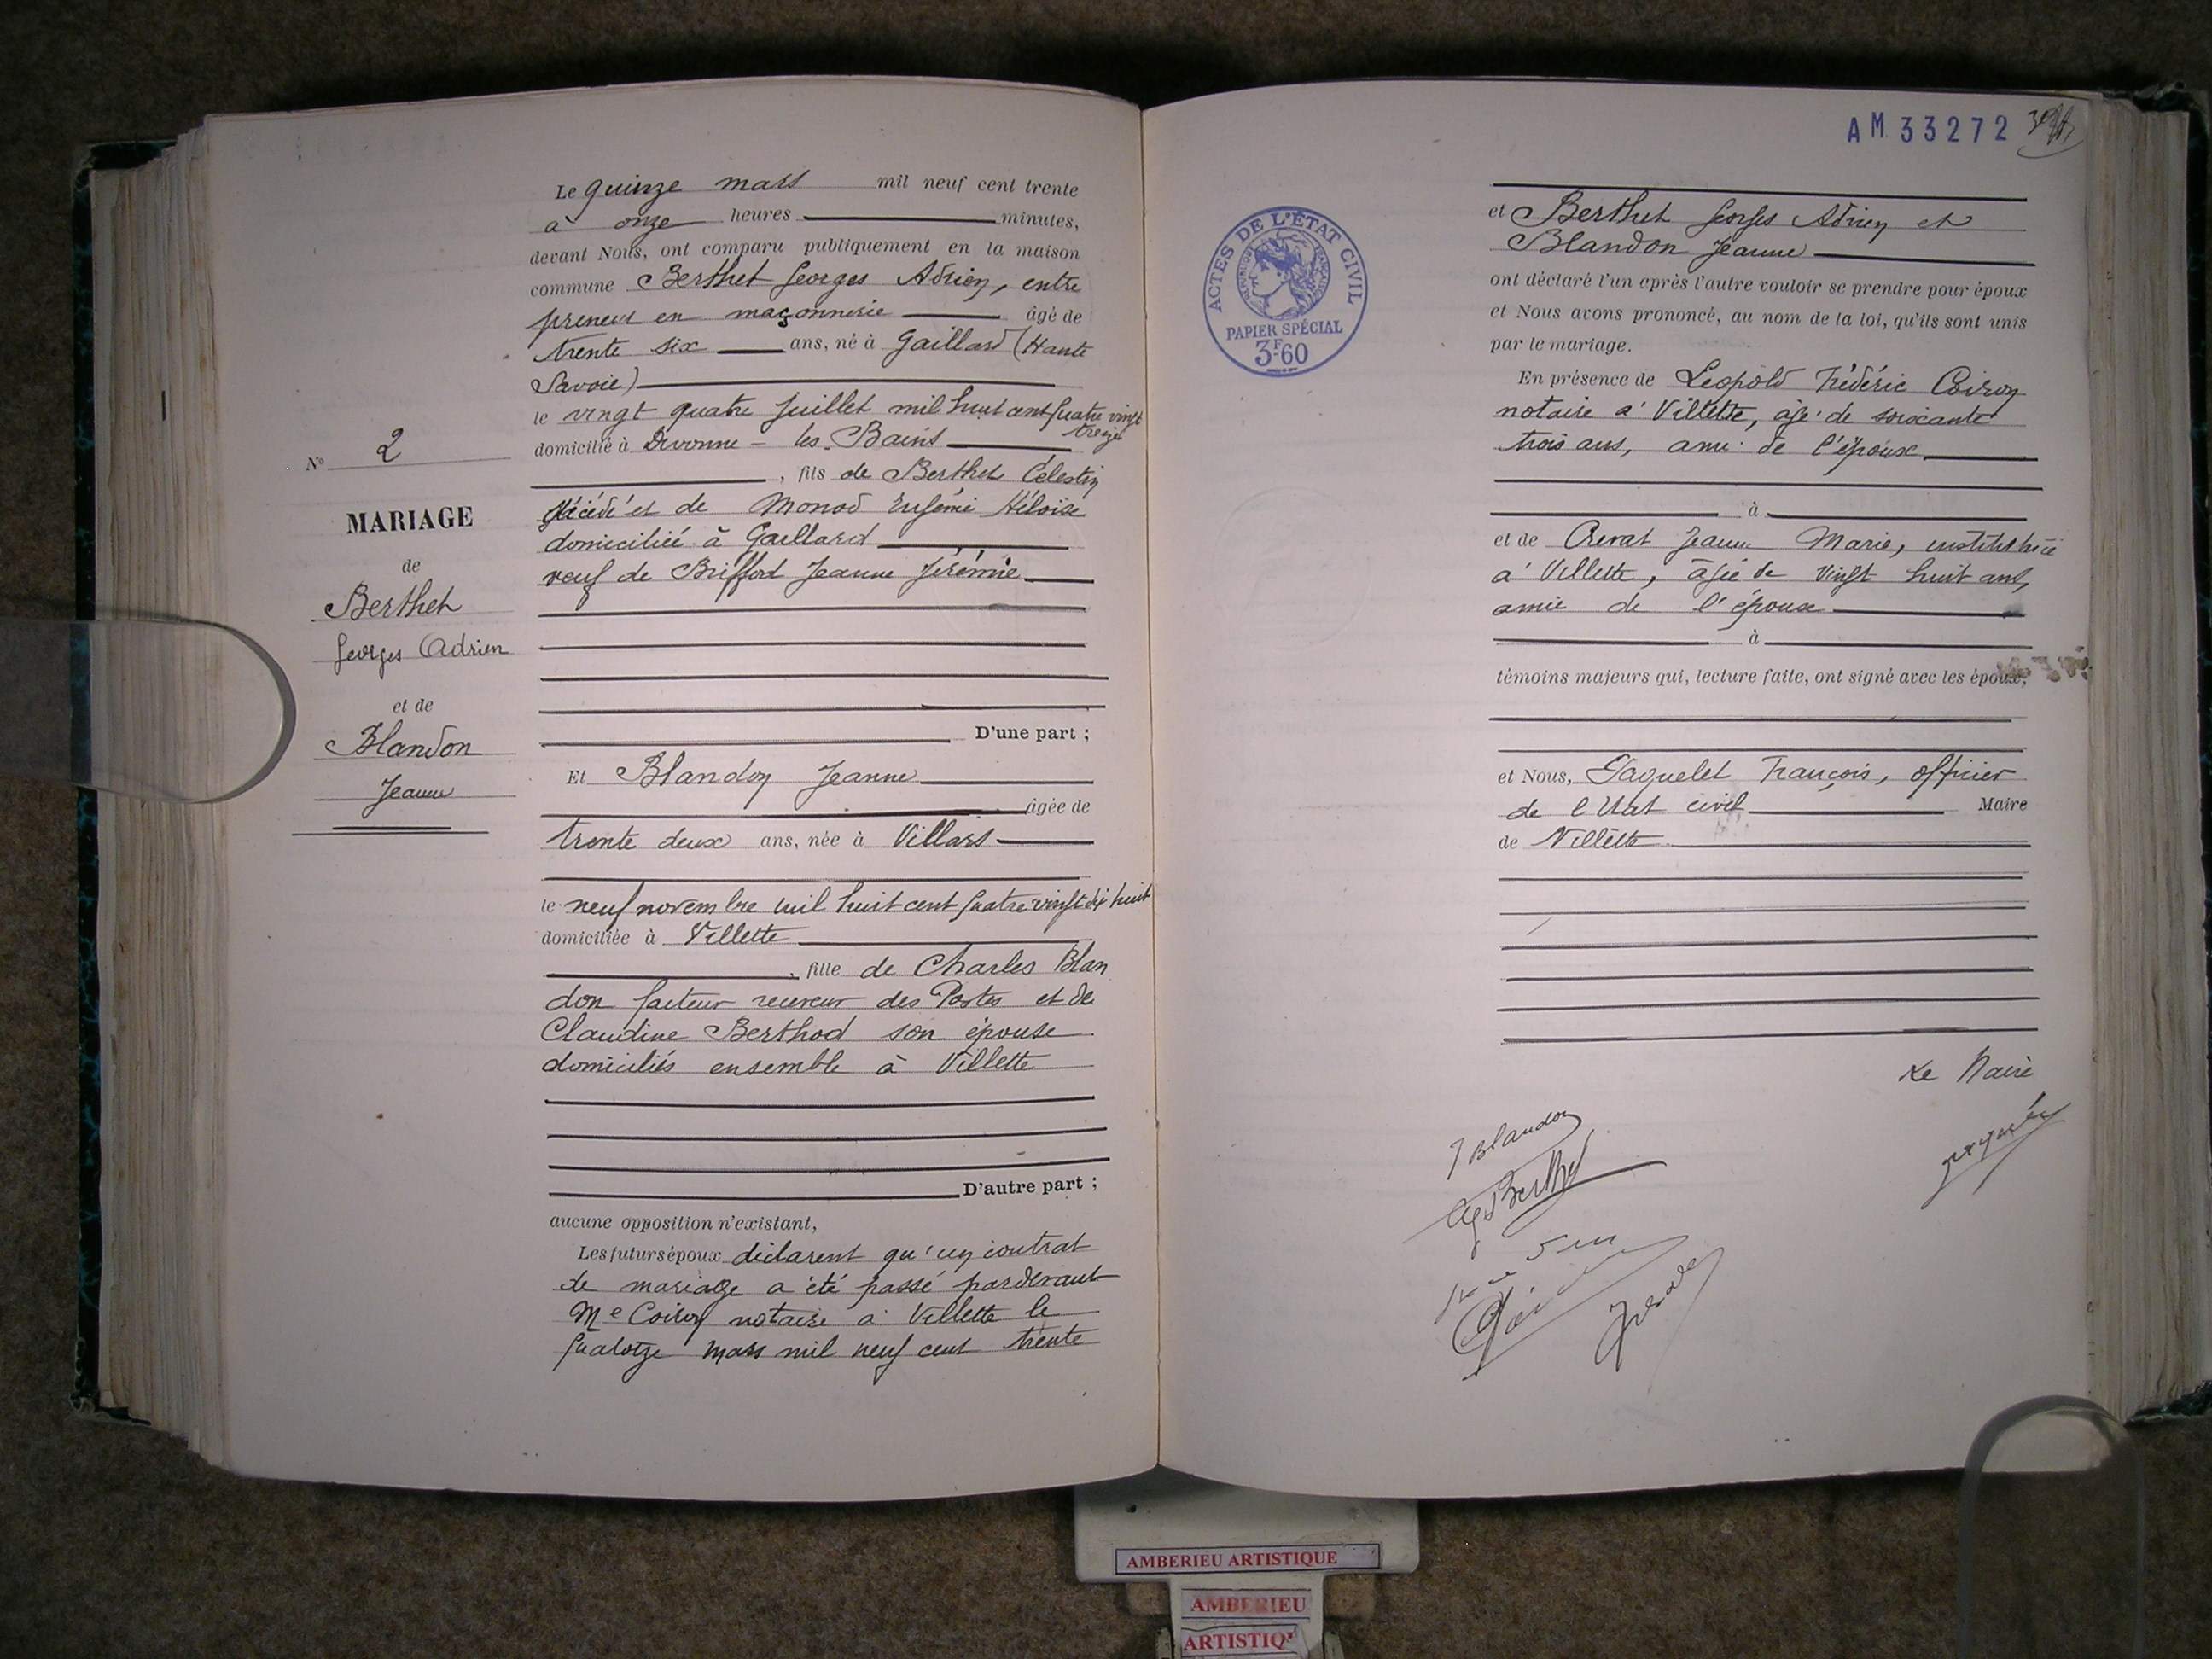 Le quinze mars mil neuf cent trente
à onze heures minutes,
devant Nous, ont comparu publiquement en la maison
commune Berthet Georges Adrien, entre
preneur en maçonnerie âgé de
trente six ans, né à Gaillard (Haute
Savoie)
le vingt quatre juillet mil huit cent quatre vingt
treize
domicilié à Divonne - les - Bains
, fils de Berthet Célestin
décédé et de Monod Eugénie Héloïse
domiciliée à Gaillard
veuf de Jeanne Jérémie
D'une part ;
Et Blandon Jeanne
âgée de
trente deux ans, née à Villars
le neuf novembre mil huit cent quatre vingt dix huit
domiciliée à Villette
, fille de Charles Blan
don facteur receveur des Postes et de
Claudine Berthod son épouse
domiciliés ensemble à Villette
D'autre part ;
aucune opposition n'existant,
Les futurs époux déclarent qu'un contrat
de mariage a été passé pardevant
Me Coiron notaire à Villette le
quatorze mars mil neuf cent trente
No 2
MARIAGE
de
Berthet
Georges Adrien
et de
Blandon
Jeanne
AM 33272
ACTES DE L'ÉTAT CIVIL
RÉPUBLIQUE FRANÇAISE
PAPIER SPÉCIAL
3F60
et Berthet Georges Adrien et
Blandon Jeanne
ont déclaré l'un après l'autre vouloir se prendre pour époux
et Nous avons prononcé, au nom de la loi, qu'ils sont unis
par le mariage.
En présence de Leopold Frédéric Coiron
notaire à Villette, âgé de soixante
trois ans, ami de l'épouse
à
et de Jeanne Marie, institutrice
à Villette, âgée de vingt huit ans,
amie de l'épouse
à
témoins majeurs qui, lecture faite, ont signé avec les époux,
et Nous, Jaquelet François, officier
de l'Etat civil Maire
de Villette
Le Maire
J Blandon
Berthet
AMBERIEU ARTISTIQUE
AMBERIEU
ARTISTIQ